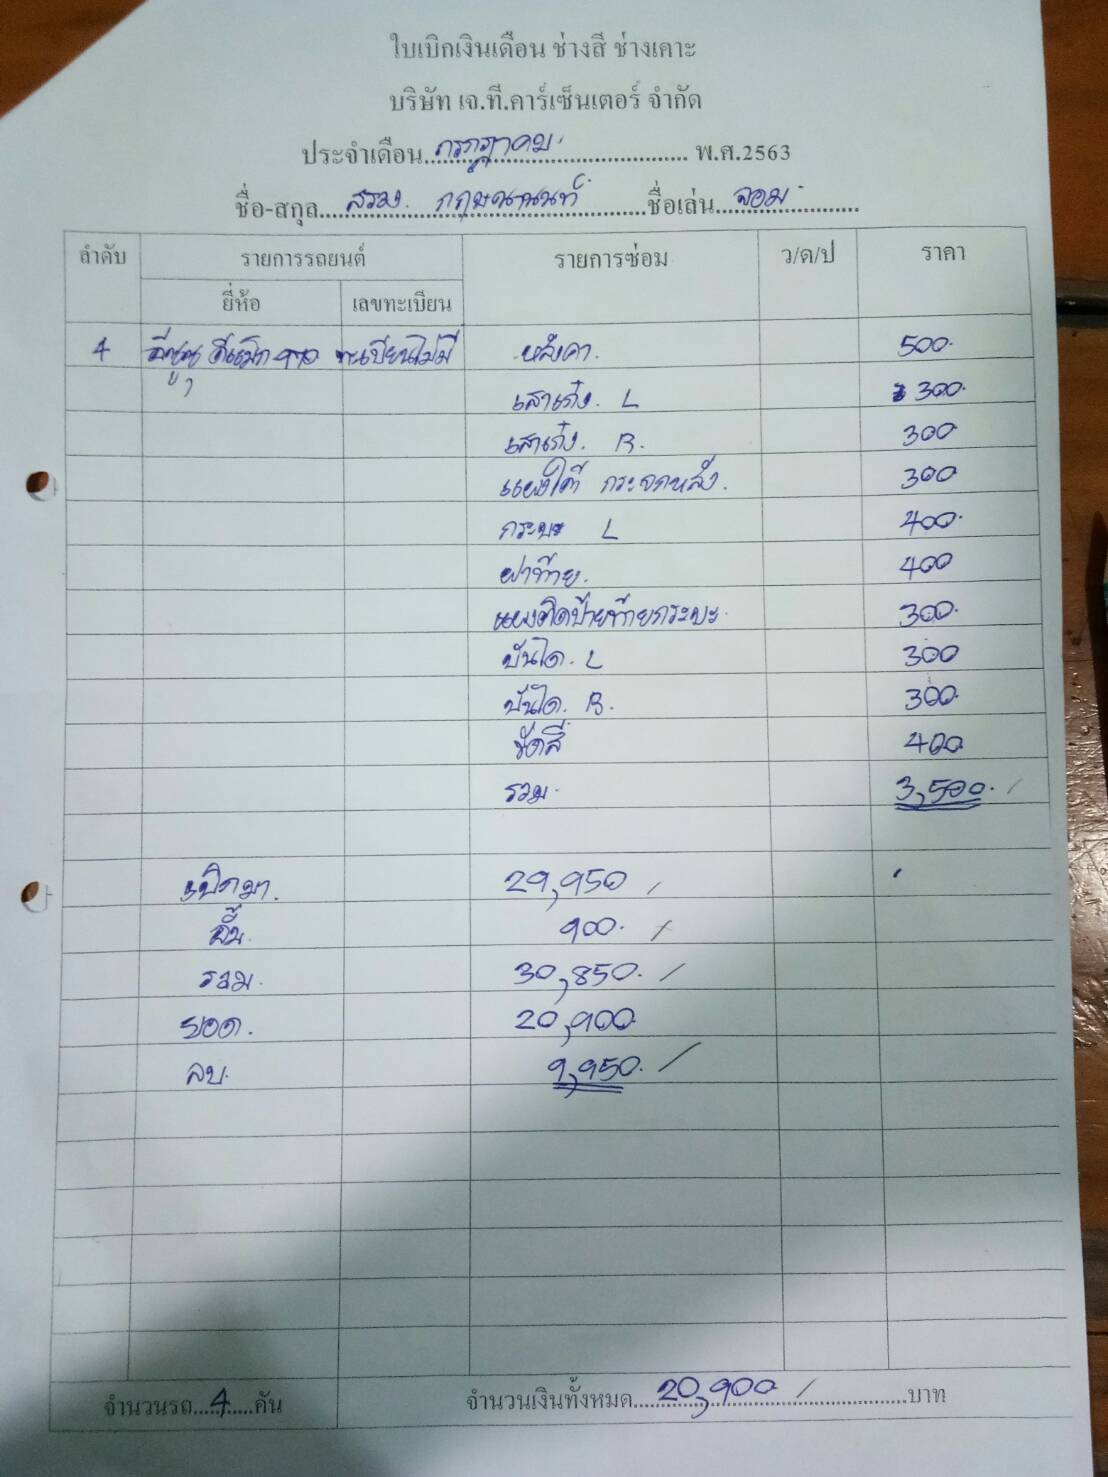 ใบเบิกเงินเดือน ช่างสี ช่างเคาะ
บริษัท เจ.ที.คาร์เซ็นเตอร์ จำกัด
ประจำเดือน...กรกฎาคม... พ.ศ.2563
ชื่อ-สกุล... กฤษณานนท์...ชื่อเล่น...จอม...
ลำดับ รายการรถยนต์ รายการซ่อม ว/ด/ป ราคา
ยี่ห้อ เลขทะเบียน
4 อีซูซุ ดีแม็ก ทะเบียนไม่มี หลังคา. 500.
เสาเก๋ง. L 300.
เสาเก๋ง. R. 300
แผงใต้ กระจกหลัง. 300
กระบะ L 400.
ฝาท้าย. 400
แผงติดป้ายท้ายกระบะ. 300.
บันได. L 300
บันได. R. 300.
ขัดสี 400
รวม. 3,500.
เบิกมา. 29,950
900.
รวม. 30,850.
ยอด. 20,900
ลบ. 9,950.
จำนวนรถ...4...คัน จำนวนเงินทั้งหมด...20,900...บาท